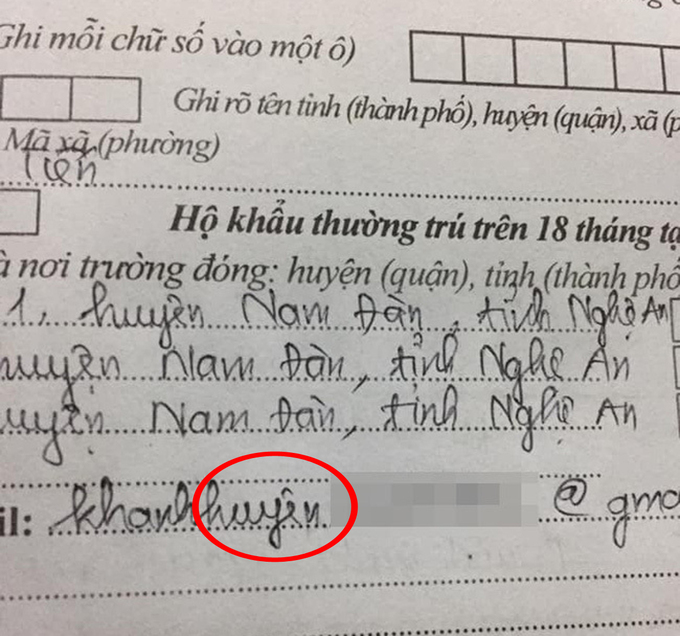 Ghi mỗi chữ số vào một ô)
Ghi rõ tên tỉnh (thành phố), huyện (quận), xã (p
Mã xã (phường)
Tiến
Hộ khẩu thường trú trên 18 tháng tạ
à nơi trường đóng: huyện (quận), tỉnh (thành phố
1, huyện Nam Đàn, tỉnh Nghệ An
huyện Nam Đàn, tỉnh Nghệ An
uyện Nam Đàn, tỉnh Nghệ An
il: khanhhuyện @ gma